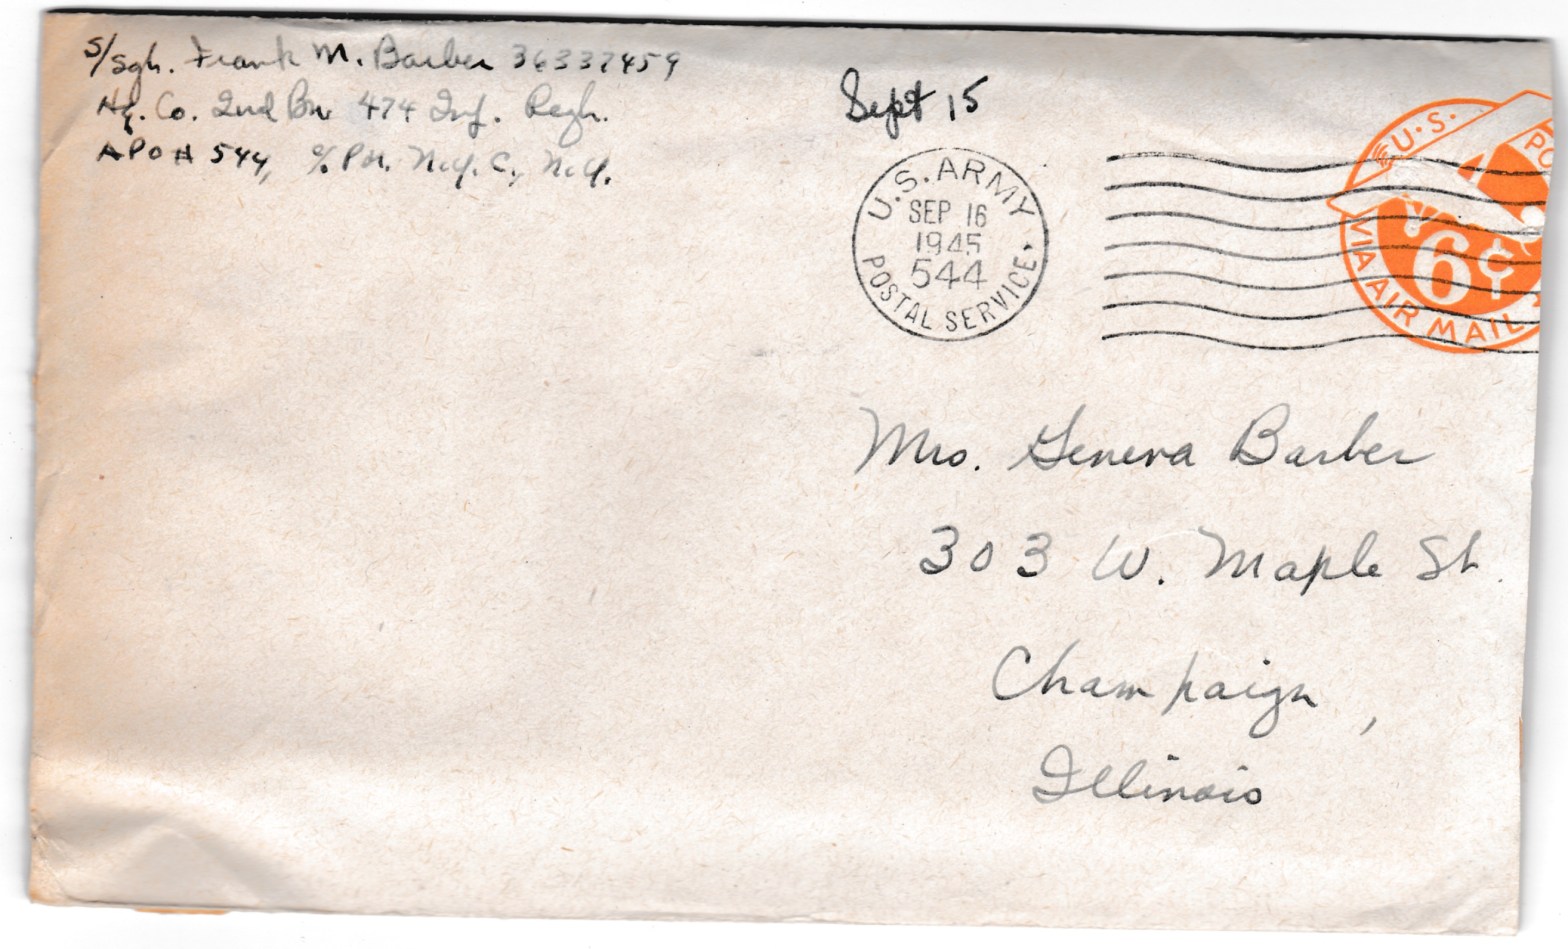 S/Sgt. Frank M. Barber 36337459
Hq. Co. 2nd Bn 474 Inf. Regt.
APO # 544, c/o P.M. N.Y.C., N.Y.
Sept 15
U.S. ARMY
SEP 16
1945
544
POSTAL SERVICE
U.S. PO
6¢
VIA AIR MAIL
Mrs. Geneva Barber
303 W. Maple St.
Champaign,
Illinois